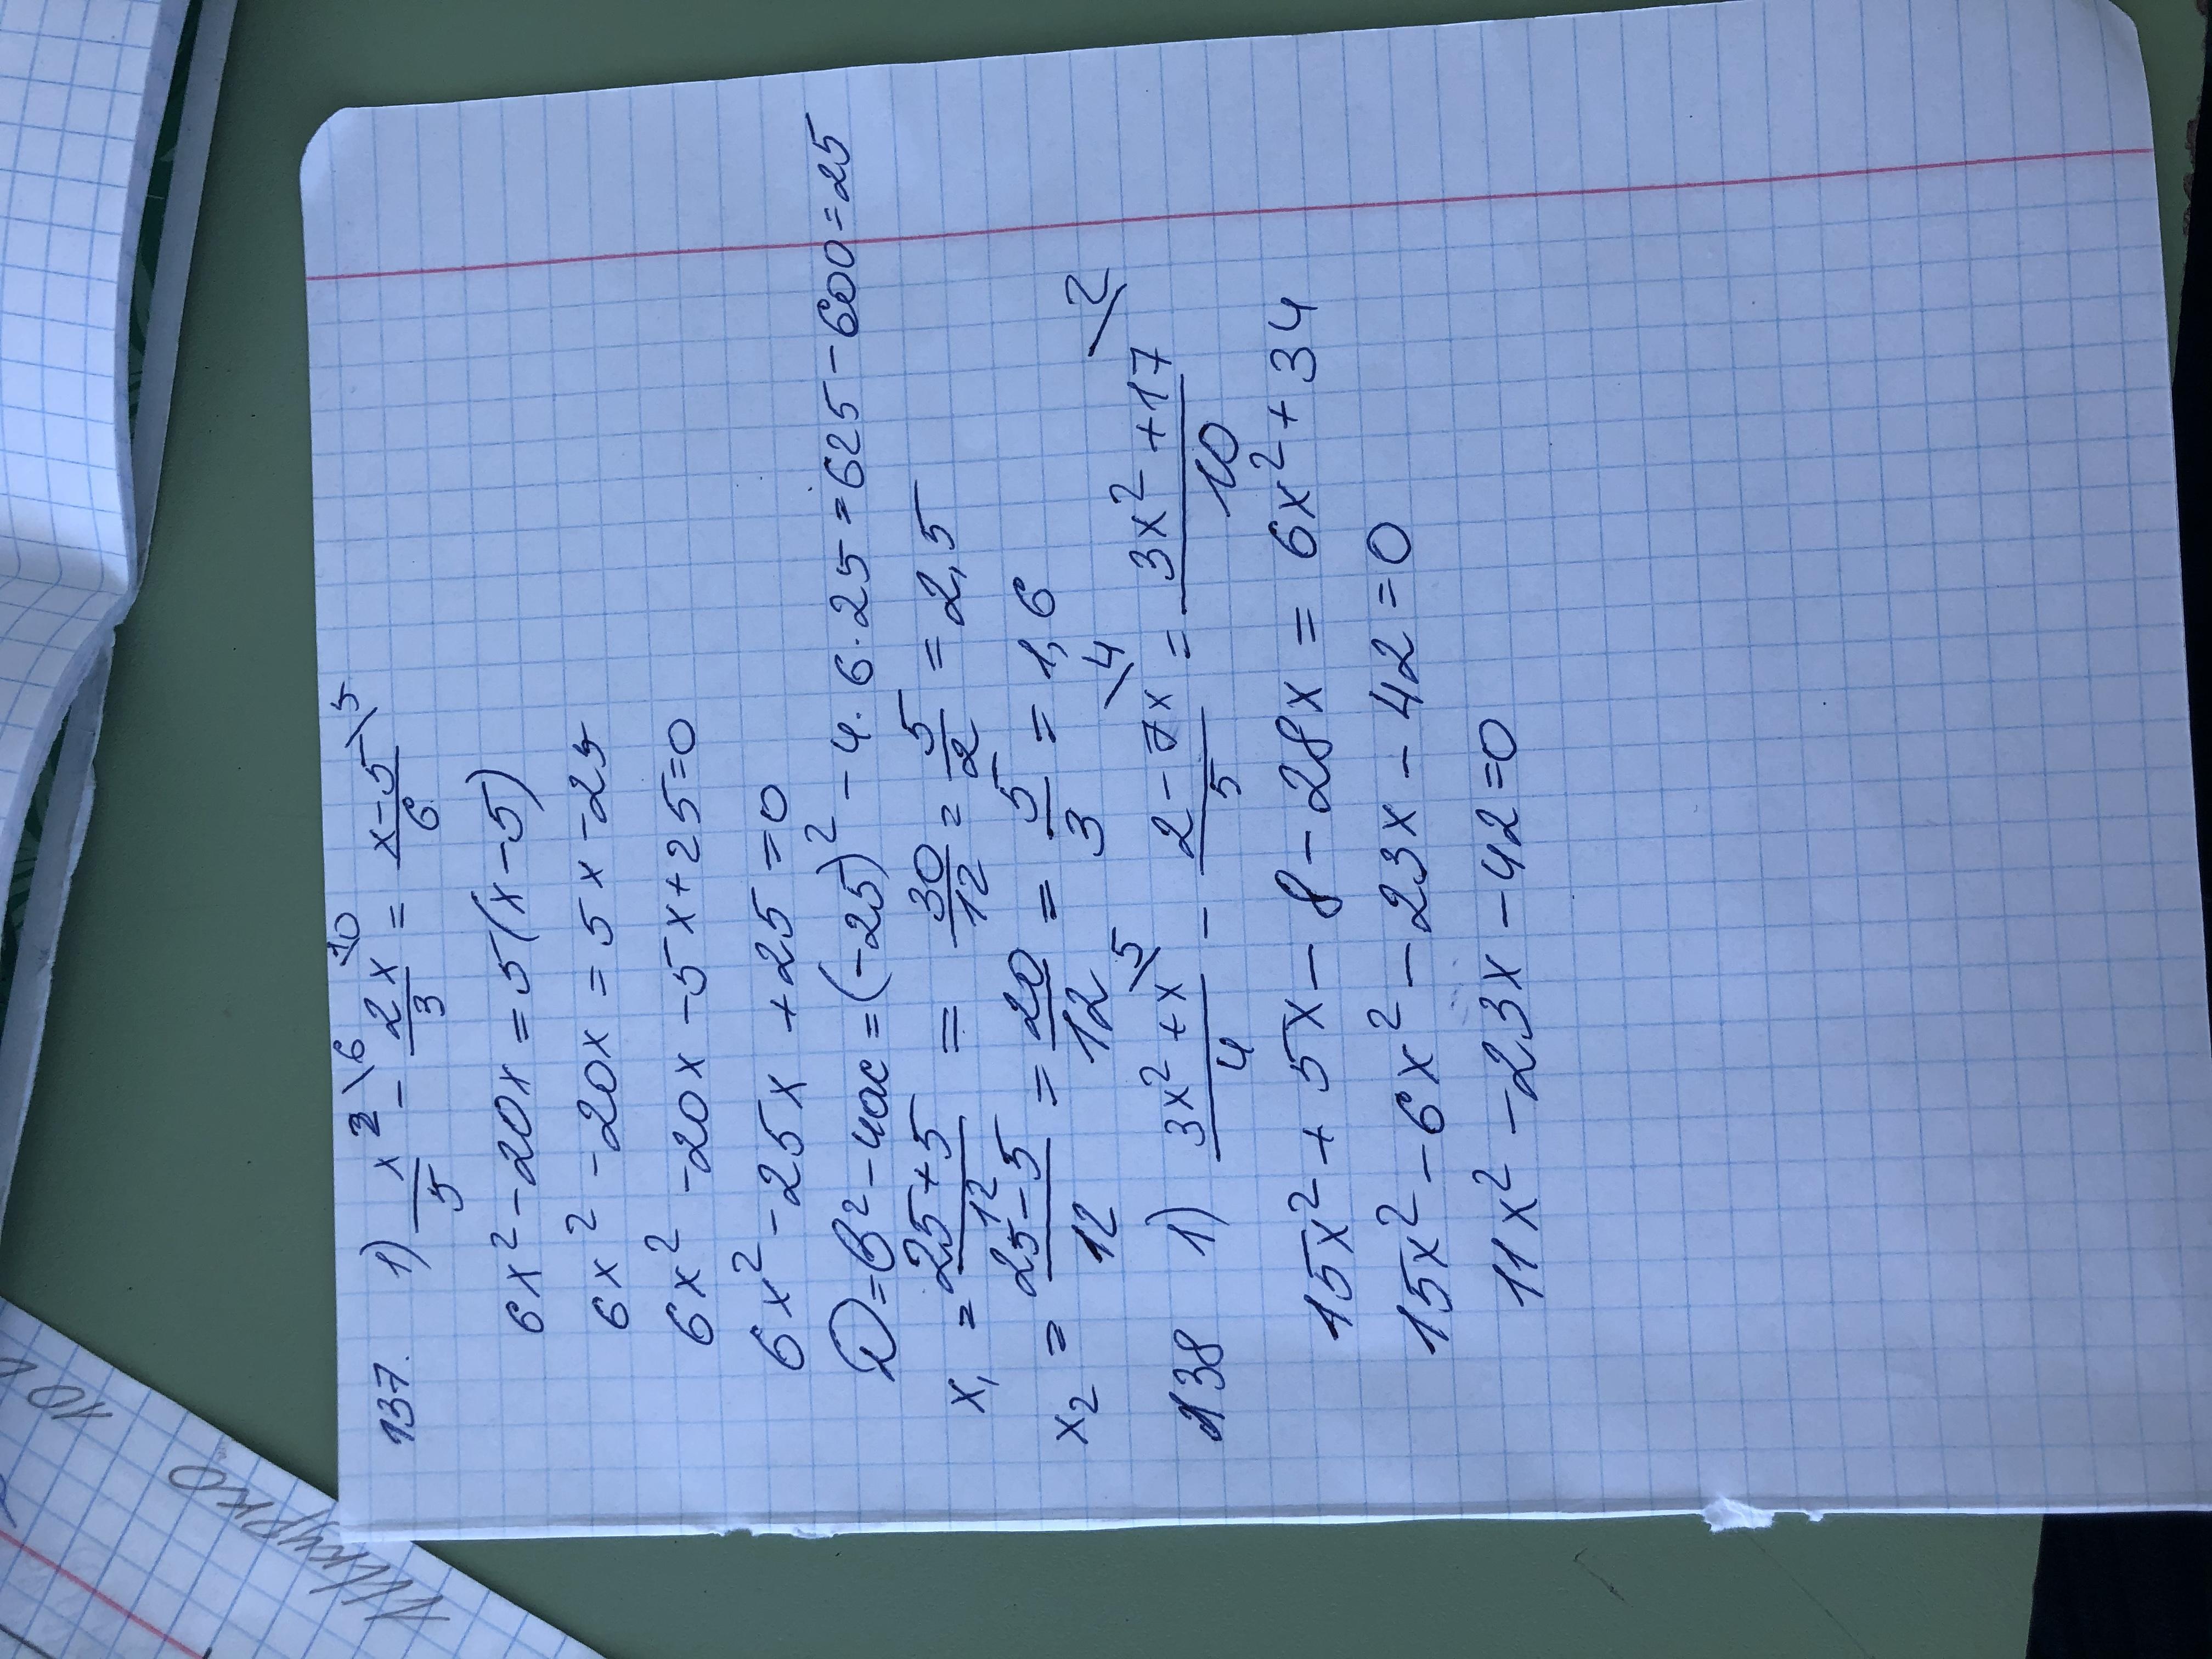 137. 1) x²/5 \6 - 2x/3 \10 = x-5/6 \5
6x² - 20x = 5(x-5)
6x² - 20x = 5x - 25
6x² - 20x - 5x + 25 = 0
6x² - 25x + 25 = 0
D = b² - 4ac = (-25)² - 4·6·25 = 625 - 600 = 25
x₁ = 25+5/12 = 30/12 = 5/2 = 2,5
x₂ = 25-5/12 = 20/12 = 5/3 = 1,6
138 1) 3x²+x/4 \5 - 2-7x/5 \4 = 3x²+17/10 \2
15x² + 5x - 8 - 28x = 6x² + 34
15x² - 6x² - 23x - 42 = 0
11x² - 23x - 42 = 0
Шкурко
10